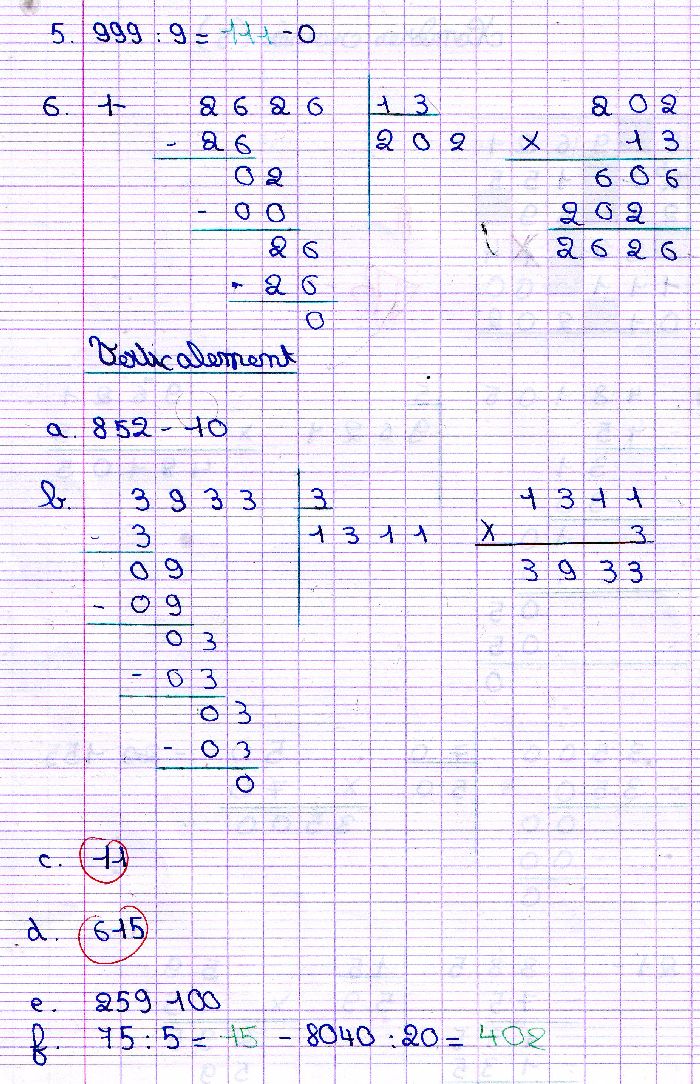 5. 999 : 9 = 111 - 0
6. 1- 2626 13 202
- 26 202 X 13
02 606
- 00 202
26 2626
- 26
0
Verticalement
a. 852 - 10
b. 3933 3 1311
- 3 1311 X 3
09 3933
- 09
03
- 03
03
- 03
0
c. 11
d. 615
e. 259 100
f. 75 : 5 = 15 - 8040 : 20 = 402